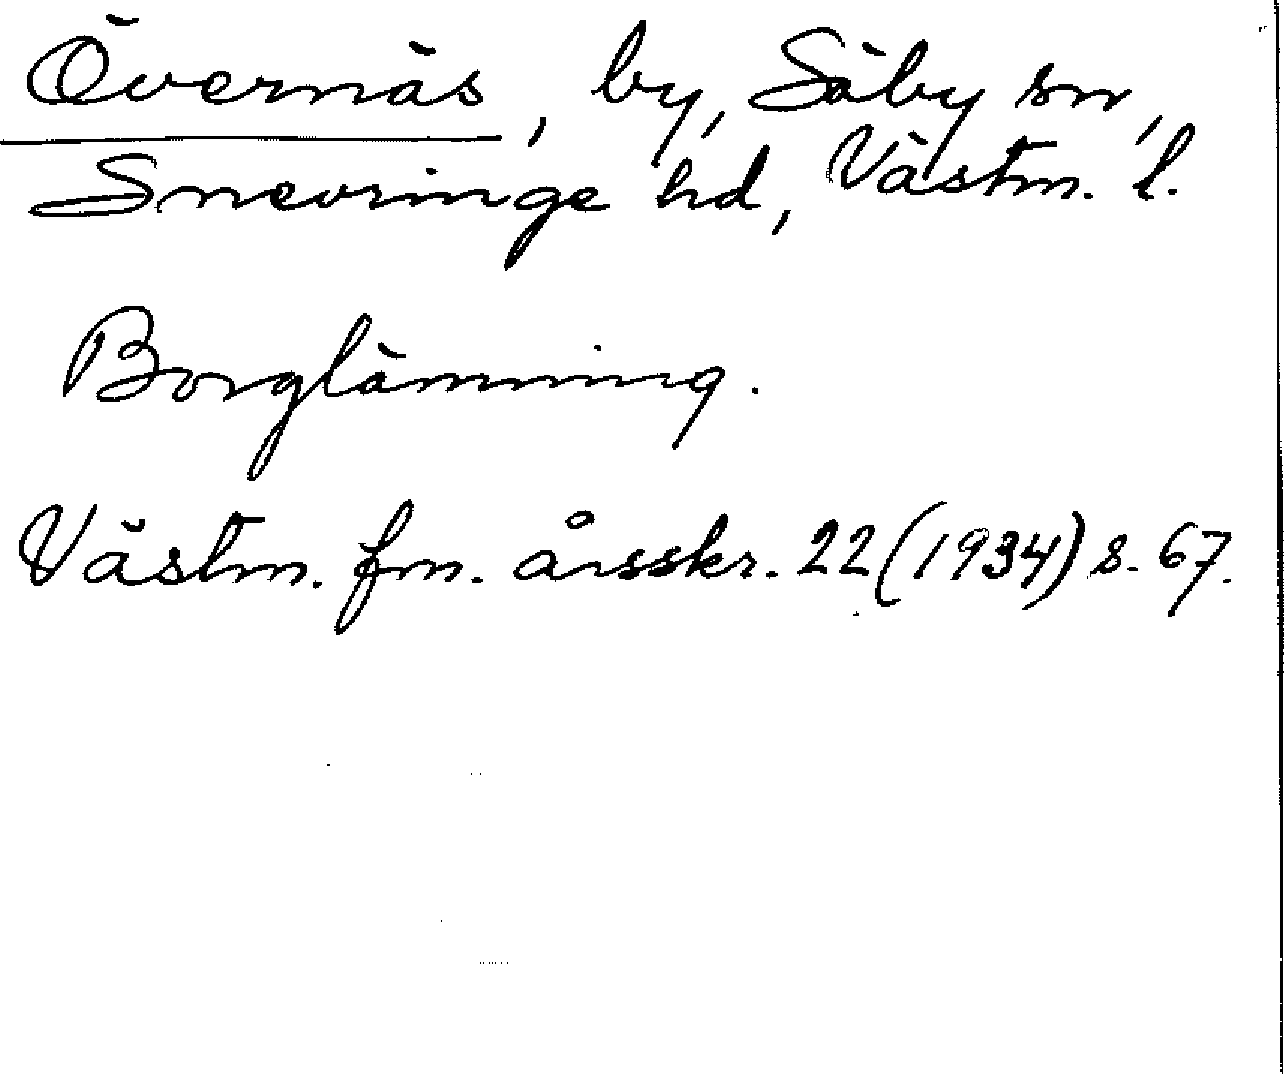 Övernäs, by, Säby sn,
Snevringe hd, Västm. l.
Borglämning.
Västm. fm. årsskr. 22 (1934) s. 67.